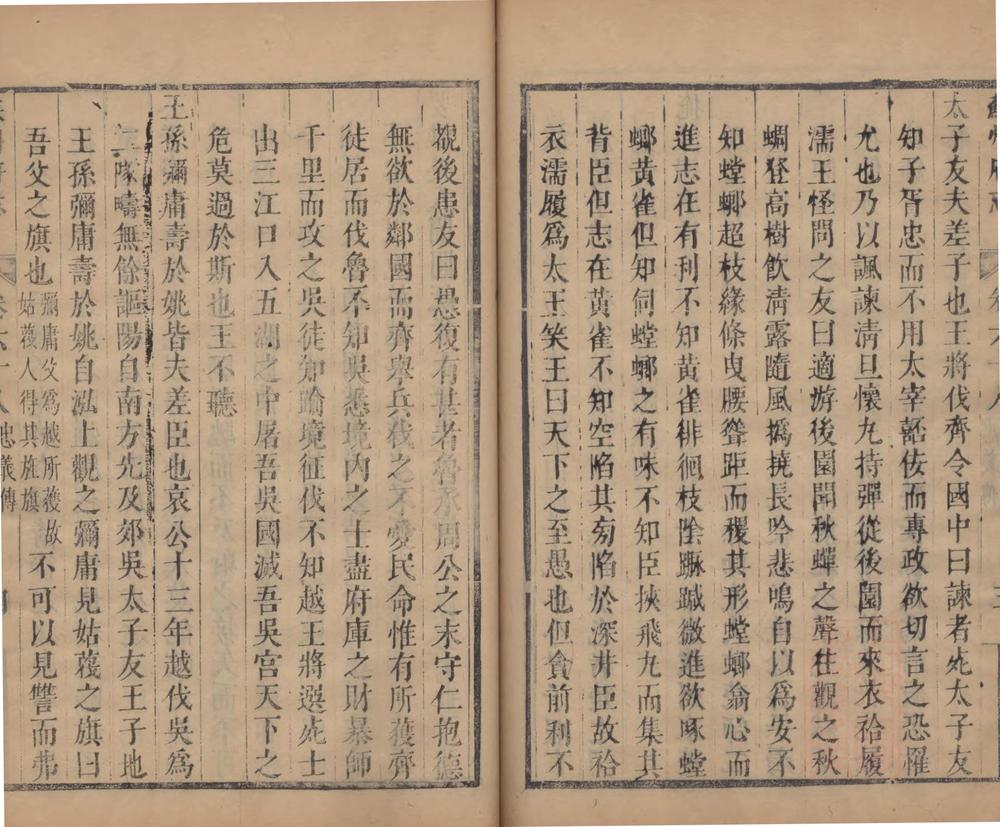 太子友夫差子也王將伐齊令國中曰諫者死太子友
知子胥忠而不用太宰嚭佞而專政欲切言之恐懼
尤也乃以諷諫淸旦懷九持彈從後園而來衣袷履
濡王怪問之友曰適游後園聞秋蟬之聲徃觀之秋
蜩登高樹飲淸露隨風撝撓長吟悲鳴自以爲安不
知螳蜋超枝緣條曳腰聳距而稷其形螳蜋翕心而
進志在有利不知黃雀徘徊枝陰踙䠞微進欲啄螳
蜋黃雀但知伺螳蜋之有味不知臣挾飛九而集其
背臣但志在黃雀不知空陷其旁陷於深井臣故袷
衣濡履爲太王笑王曰天下之至愚也但貪前利不
覩後患友曰愚復有甚者魯承周公之末守仁抱德
無欲於鄰國而齊舉兵伐之不愛民命惟有所獲齊
徒居而伐魯不知吳悉境內之士盡府庫之財暴師
千里而攻之吳徒知踰境征伐不知越王將選死士
出三江口入五湖之中屠吾吳國滅吾吳宮天下之
危莫過於斯也王不聽
王孫彌庸壽於姚皆夫差臣也哀公十三年越伐吳爲
二隊疇無餘謳陽自南方先及郊吳太子友王子地
王孫彌庸壽於姚自泓上觀之彌庸見姑蔑之旗曰
吾父之旗也彌庸父爲越所獲故姑蔑人得其旌旗不可以見讐而弗